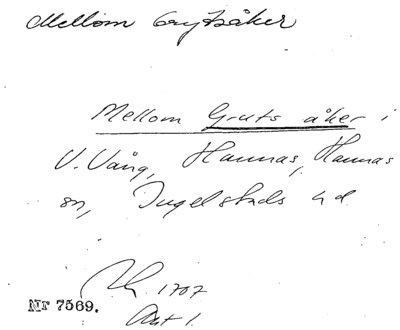 Mellom Grytsåker
Mellom Gruts åker i
V. Vång, Hannas, Hannas
sn, Ingelstads hd
1707
Akt 1.
Nr 7569.